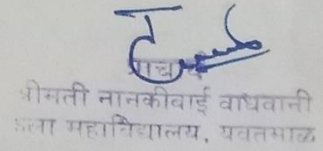 प्राचार्य
श्रीमती नानकीबाई वाधवानी
कला महाविद्यालय, यवतमाळ